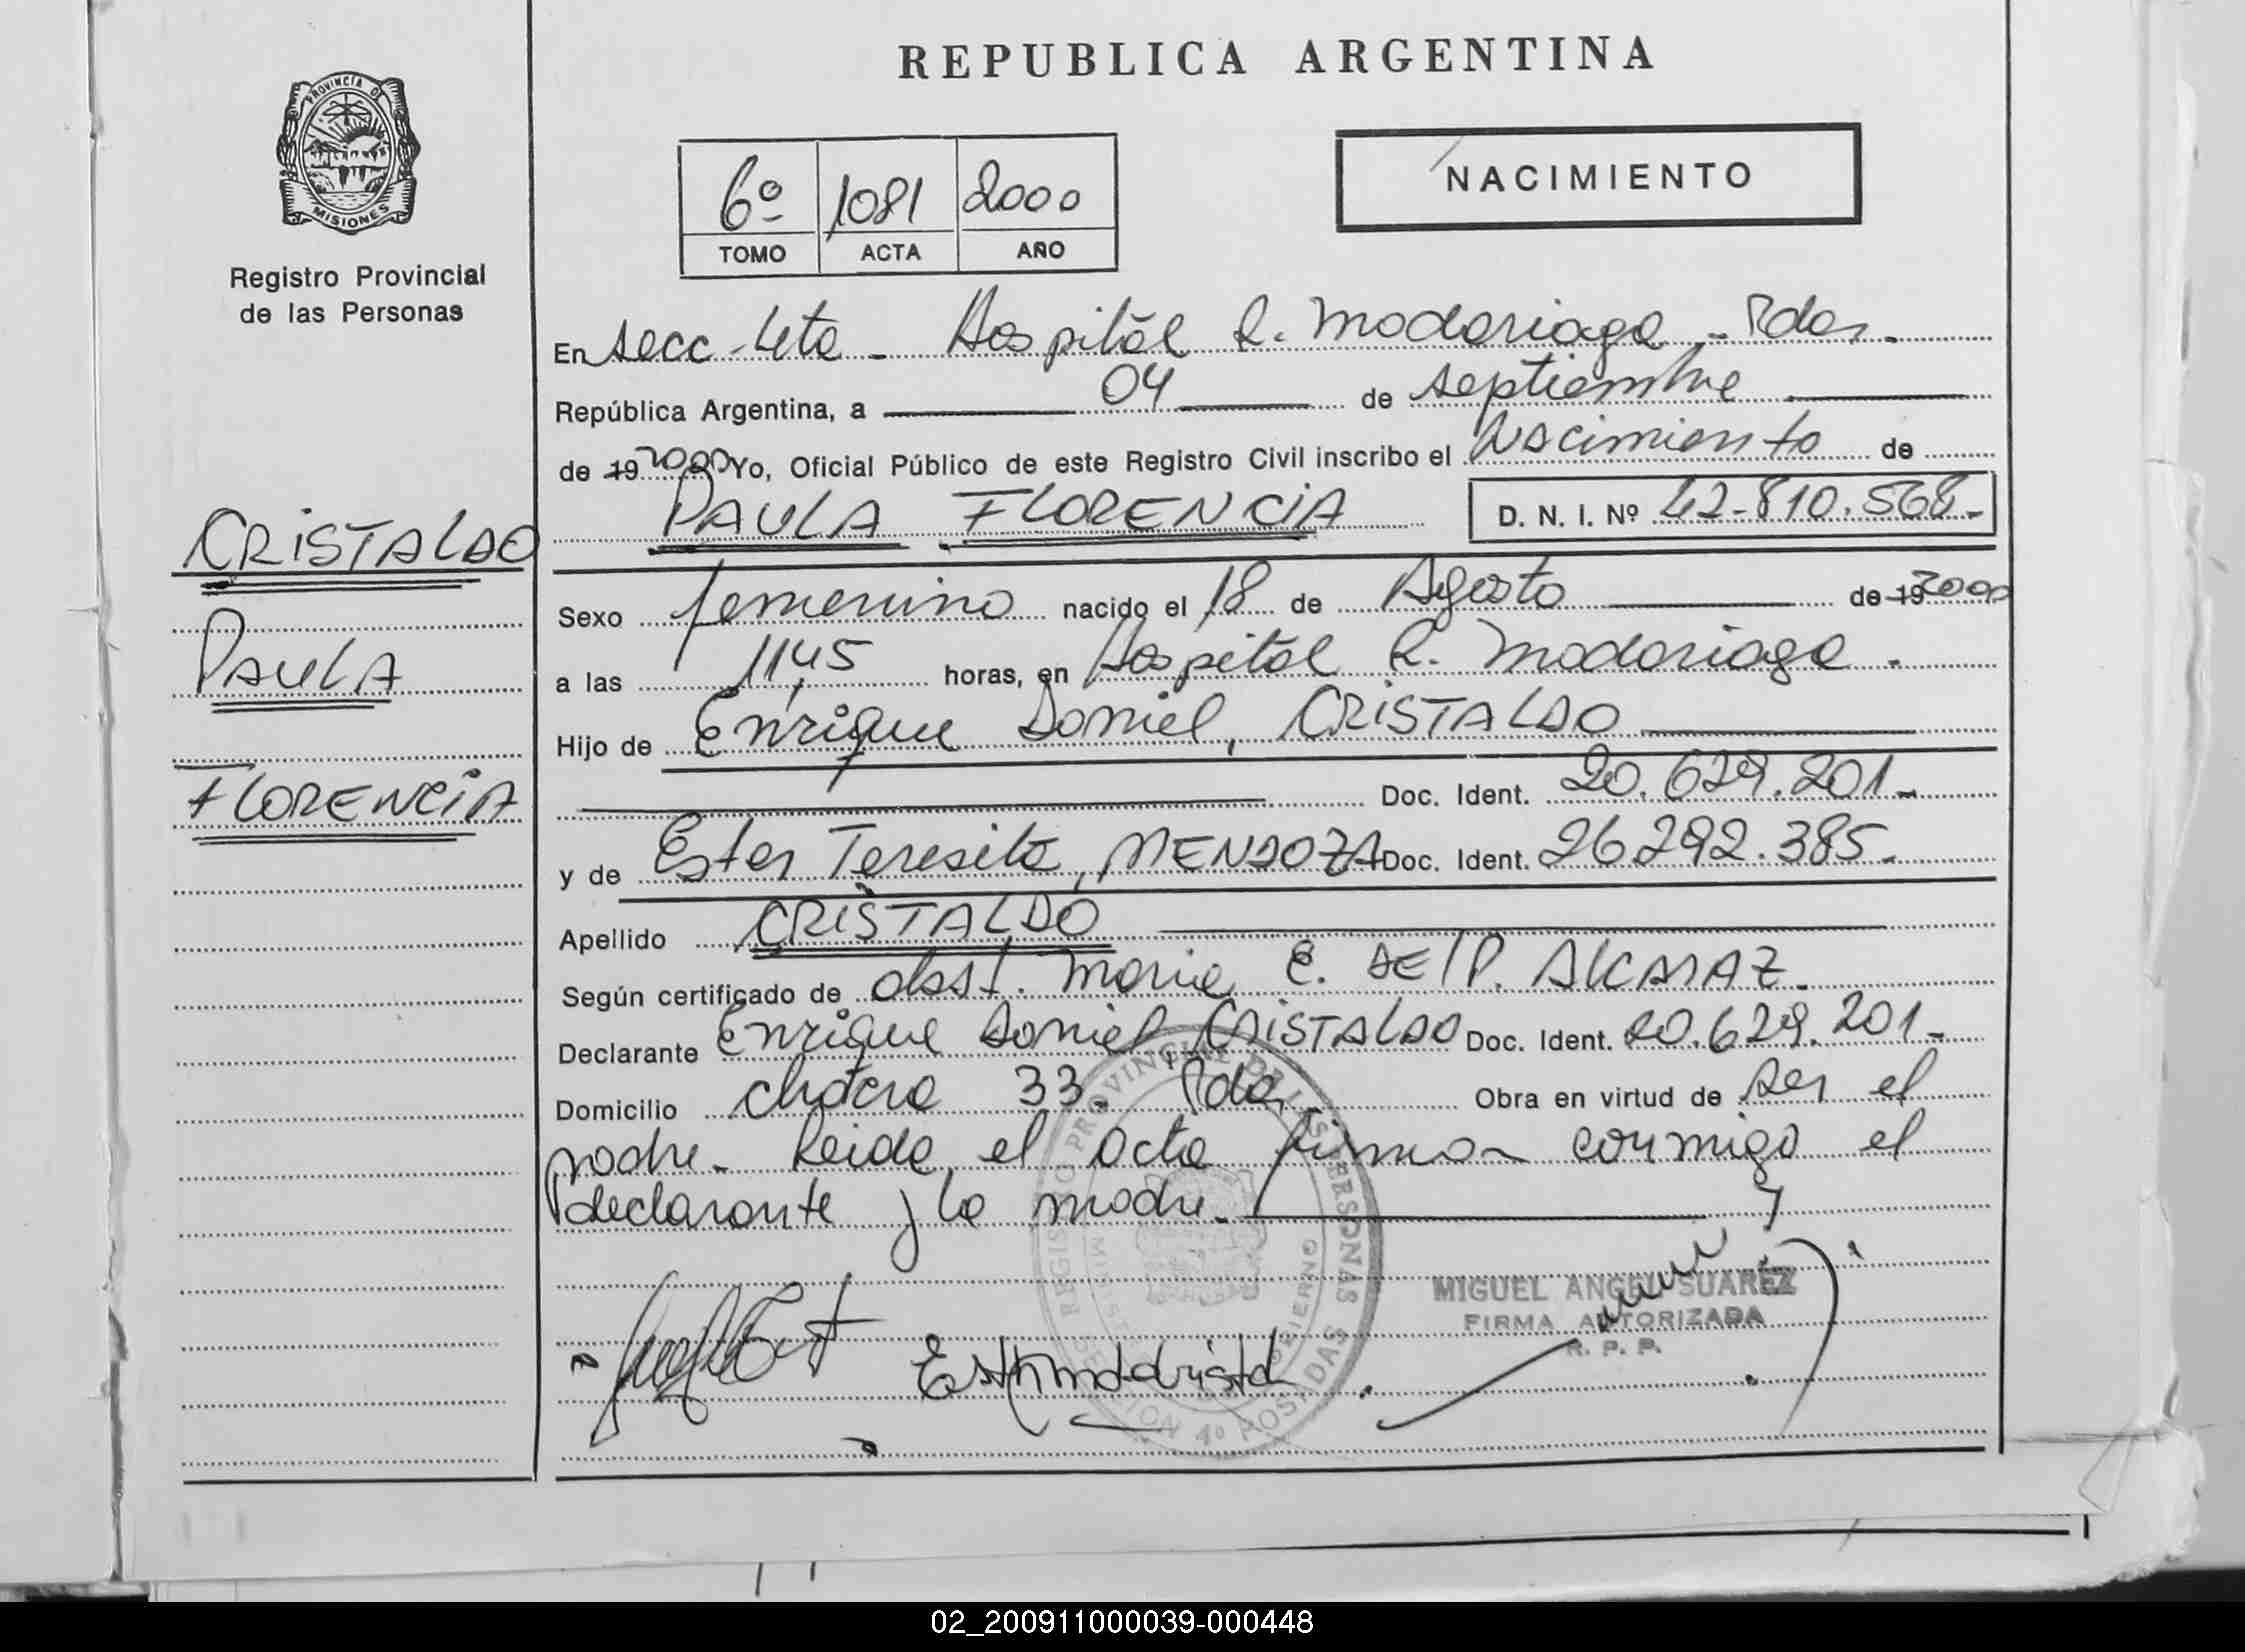 REPUBLICA ARGENTINA
PROVINCIA D
MISIONES
Registro Provincial
de las Personas
6º 1081 2000
TOMO ACTA AÑO
NACIMIENTO
En Secc. 4ta - Hospital R. Madariaga - Pdas.
República Argentina, a 04 de septiembre
de 19 2000 Yo, Oficial Público de este Registro Civil inscribo el Nacimiento de
PAULA FLORENCIA D. N. I. Nº 42-810.568-
CRISTALDO
PAULA
FLORENCIA
Sexo femenino nacido el 18 de Agosto de 19 2000
a las 11,45 horas, en Hospital R. Madariaga.
Hijo de Enrique Daniel, CRISTALDO
Doc. Ident. 20.629.201-
y de Ester Teresita, MENDOZA Doc. Ident. 26292.385-
Apellido CRISTALDO
Según certificado de obst. Maria E. DEL P. ALCARAZ.
Declarante Enrique Daniel, CRISTALDO Doc. Ident. 20.629.201-
Domicilio 33. Pdas Obra en virtud de ser el
padre. Leida el acta firman conmigo el
declarante y la madre.
REGISTRO PROVINCIAL DE LAS PERSONAS
SECCION 4º POSADAS
MIGUEL ANGEL SUAREZ
FIRMA AUTORIZADA
R. P. P.
02_200911000039-000448